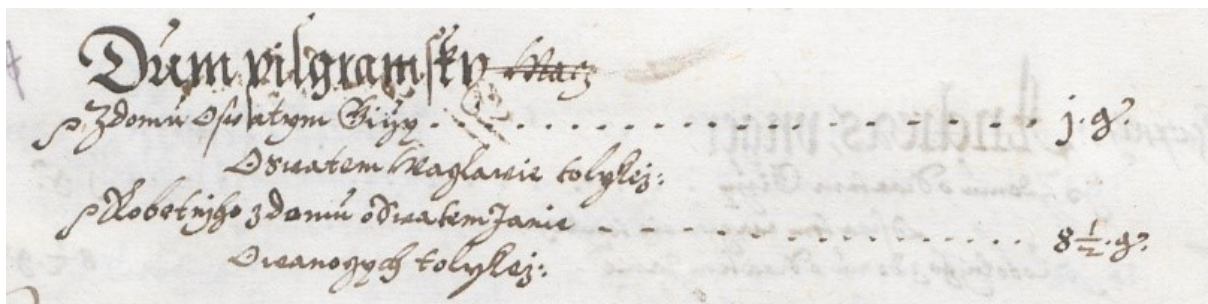 Dům pilgramsky
Z domu O swatym Giřy . . . . . . . . . . . . . . . . . . . . j . g.
O swatem Waczlawie tolykez:
Robotnyho z domu o Swatem Janie . . . . . . . . . . . . . . . . 8 1/2 . g.
O wanogych tolykez: